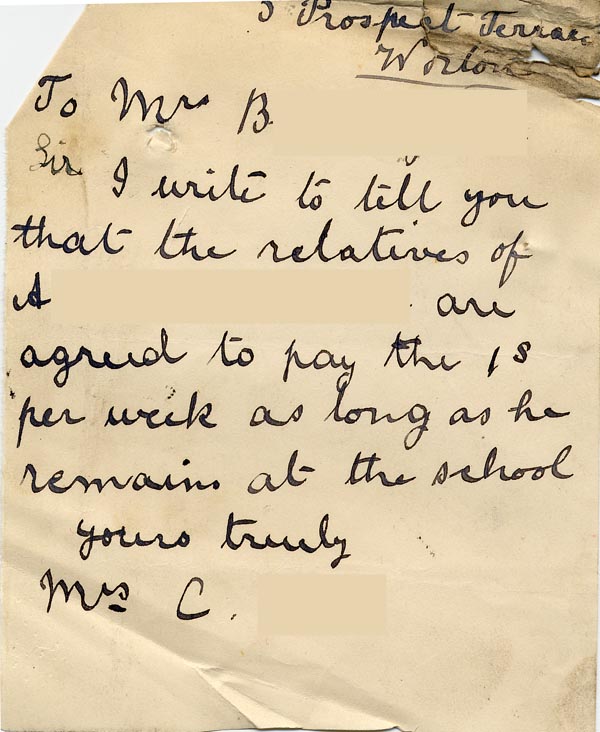 Prospect Terrace
Worton
To Mrs B
Sir I write to tell you
that the relatives of
A are
agreed to pay the 1s
per week as long as he
remains at the school
yours truly
Mrs C.